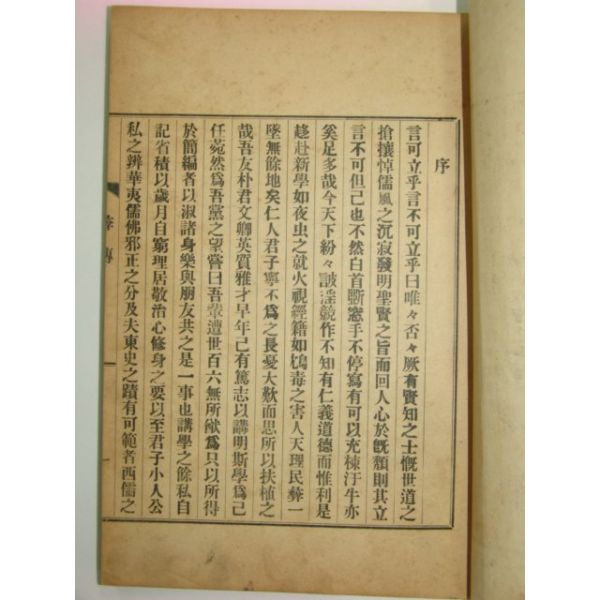 序
言可立乎言不可立乎曰唯々否々厥有賢知之士慨世道之
搶攘悼儒風之沉寂發明聖賢之旨而回人心於旣頹則其立
言不可但已也不然白首斷窓手不停寫有可以充棟汗牛亦
奚足多哉今天下紛々詖淫競作不知有仁義道德而惟利是
趍赴新學如夜虫之就火視經籍如鴆毒之害人天理民彝一
墜無餘地矣仁人君子寧不爲之長憂大歎而思所以扶植之
哉吾友朴君文卿英質雅才早年已有篤志以講明斯學爲己
任菀然爲吾黨之望嘗曰吾輩遭世百六無所猷爲只以所得
於簡編者以淑諸身樂與朋友共之是一事也講學之餘私自
記省積以歲月自窮理居敬治心修身之要以至君子小人公
私之辨華夷儒佛邪正之分及夫東史之蹟有可範者西儒之